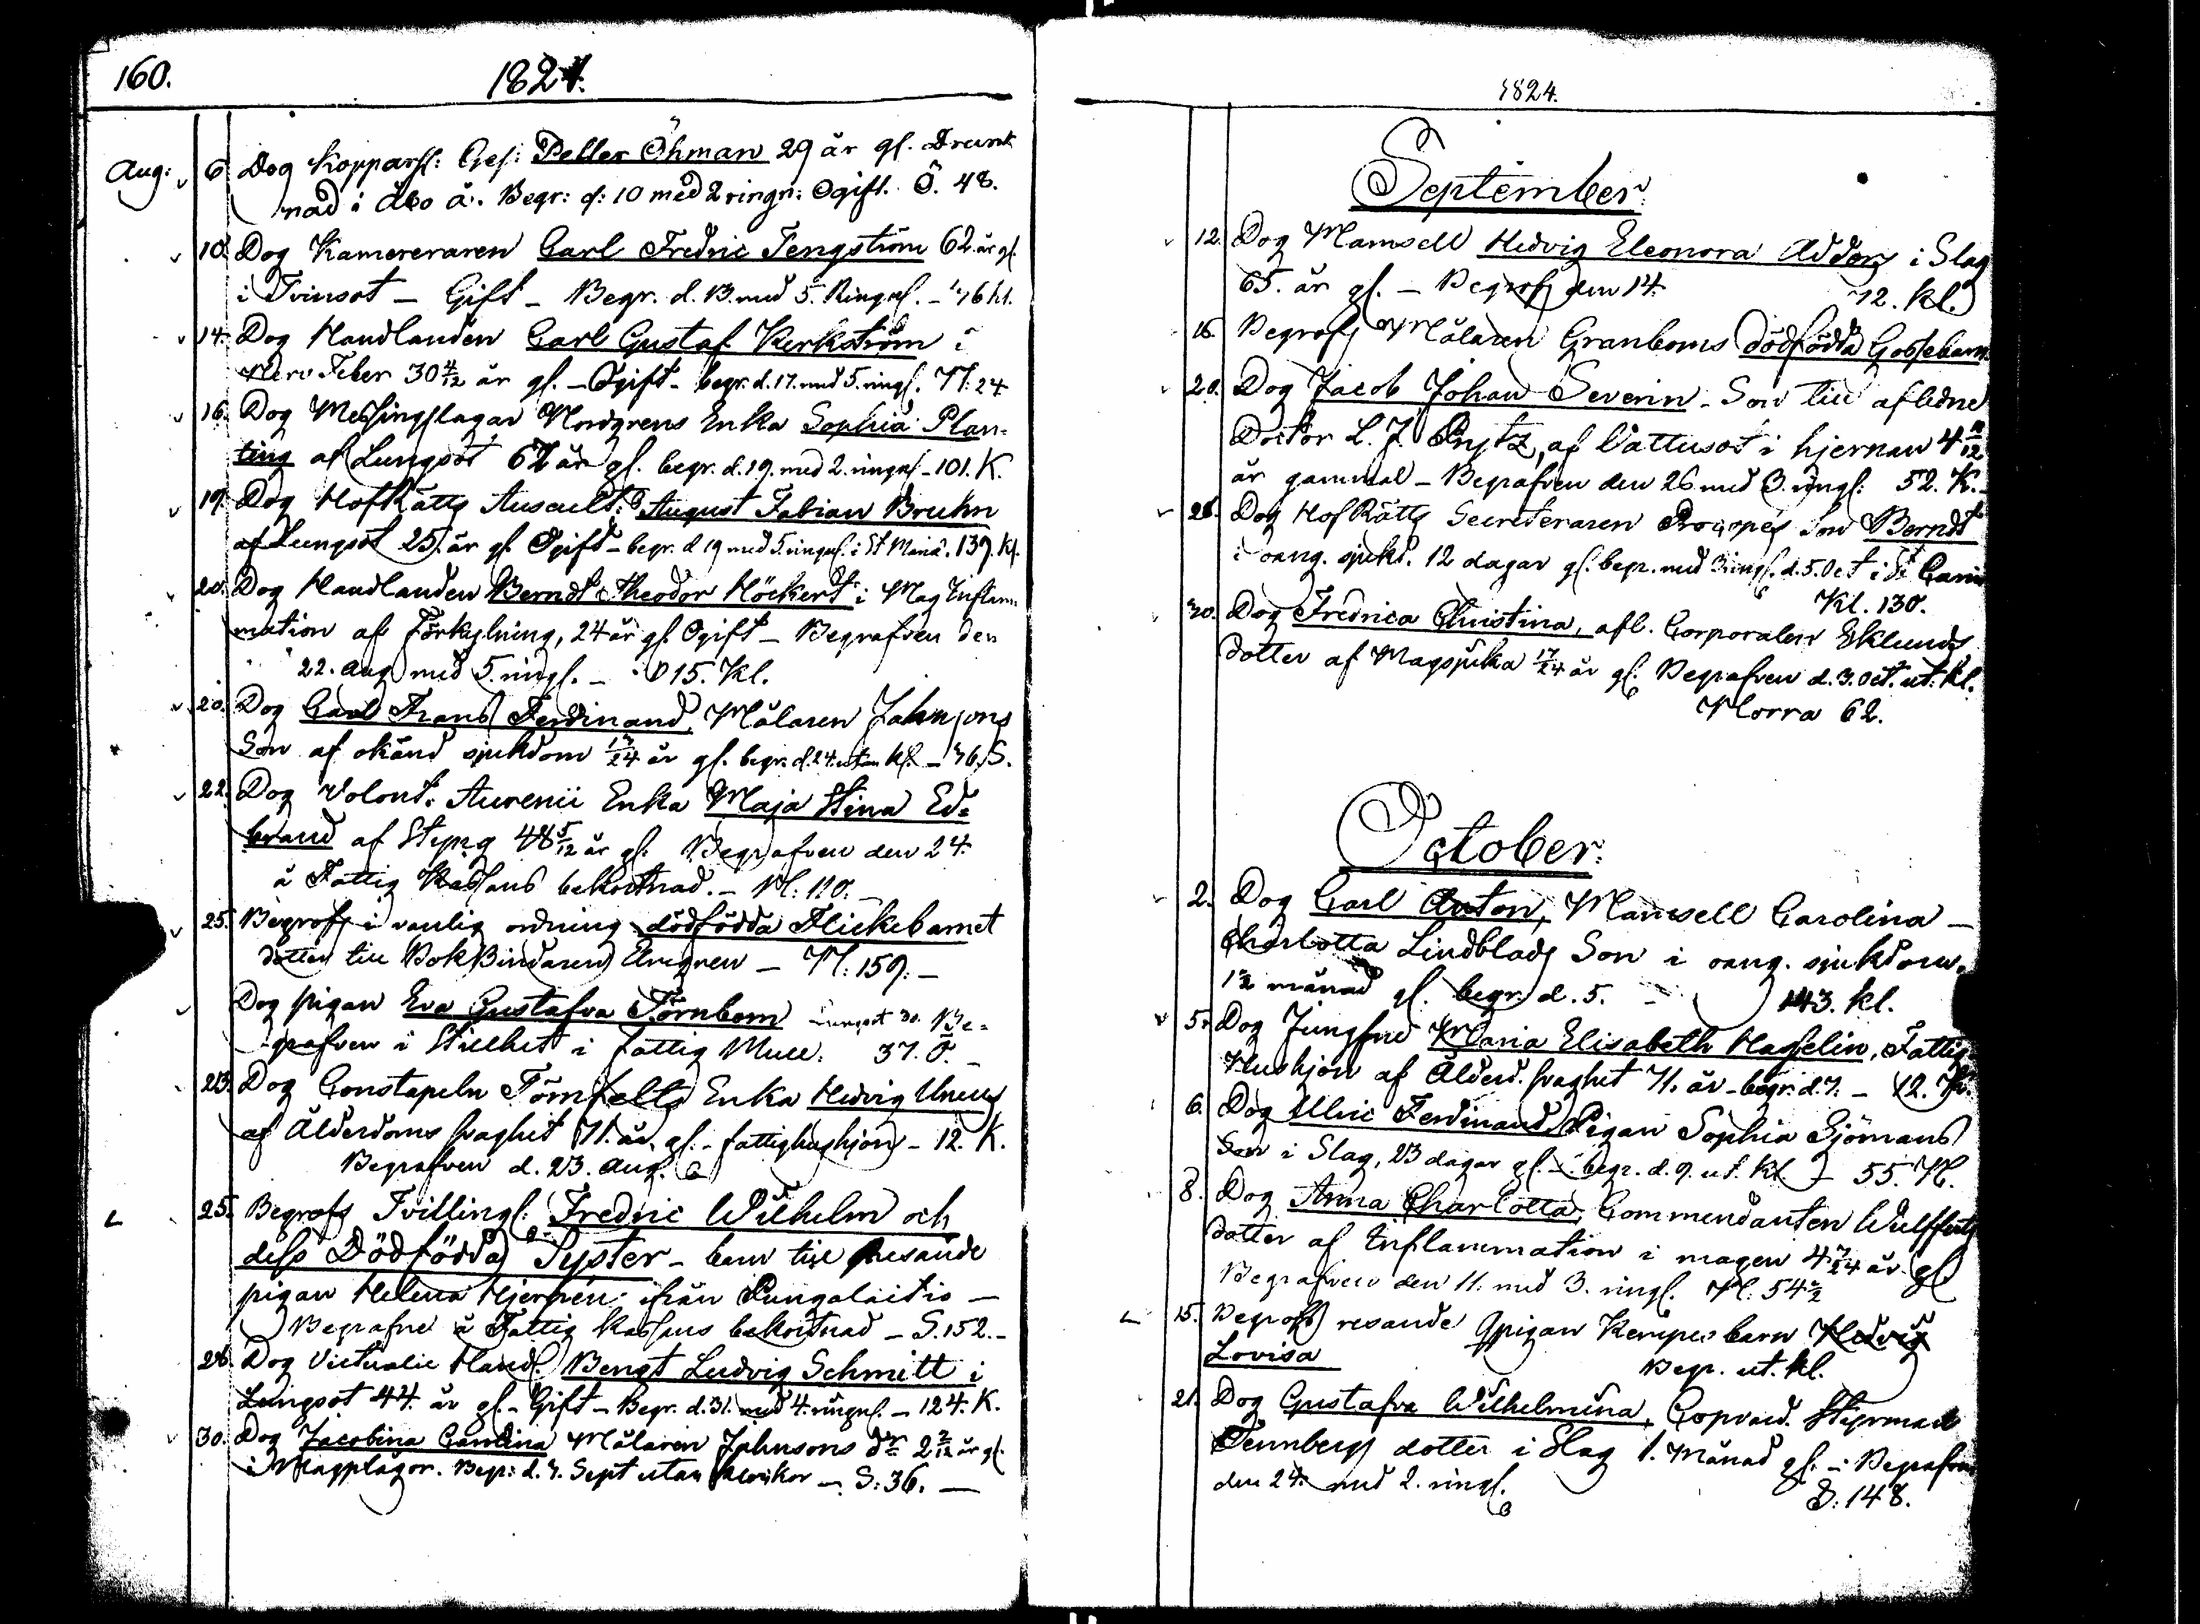 160. 1824.
Aug: 6 Dog Kopparsl: Ges: Petter Öhman 29 år gl. Drunk
nad i Åbo å. Begr: d: 10 med 2 ringn: Ogift. Ö. 48.
10. Dog Kamereraren Carl Fredric Tengström 62 år gl.
i Tvinsot – Gift – Begr. d. 13. med 5. Ringnl.
14. Dog Handlanden Carl Gustaf Kerkström i
Nerv Feber 30 4/12 år gl. – Ogift – begr. d. 17. med 5. ringl. Kl: 24
16. Dog Messingslagar Nordgrens Enka Sophia Plan-
ting af Lungsot 67 år gl. begr. d. 19. med 2. ringnl – 101. K.
17. Dog HofRätts Auscult: August Fabian Bruhn
af Lungsot 25. år gl. Ogift – begr. d 19 med 5. ringnl. i St Maria. 139. Kl.
20. Dog Handlanden Berndt Theodor Höckert i Mag Inflam
mation af Förkylning, 24 år gl. Ogift – Begrafven den
22. Aug med 5. ringl. – 15. Kl.
20. Dog Carl Frans Ferdinand, Målaren Jahnsons
Son af okänd sjukdom år gl. begr. d. 24. utan Kl. – 36. S.
22. Dog Volont. Aurenii Enka Maja Stina Ed=
brand af Styng 48 5/12 år gl. Begrafven den 24.
å Fattig Kassans bekostnad. – Kl: 110. –
25. Begrofs i vanlig ordning dödfödda Flickebarnet
dotter till BokBindaren Elvegren – Kl: 159. –
Dog pigan Eva Gustafva Törnbom Lungsot 30. Be=
grafven i Stillhet i fattig Mull. 37. Ö. –
23. Dog Constapeln Törnfelts Enka Hedvig Uneus
af Ålderdoms svaghet 71. år gl. – fattighushjon – 12. K.
Begrafven d. 23. Aug.
25. Begrofs Tvillingl: Fredric Wilhelm och
dess Dödfödda Syster – barn till resande
pigan Helena Hjerpén från Pungalaitio –
Begrafne å Fattig Kassans bekostnad – S. 152. –
28. Dog Victualie Handl Bengt Ludvig Schmitt i
Lungsot 44. år gl. – Gift – Begr. d. 31. med 4. ringnl. – 124. K.
30. Dog Jacobina Carolina Målaren Jahnsons dr 2 2/12 år gl.
i Magplågor. Begr: d. 3. Sept utan klockor – S: 36. –
1824.
September.
12. Dog Mamsell Hedvig Eleonora Addors i Slag
65. år gl. – Begrofs den 14. 12. Kl.
16. Begrofs Målaren Granboms dödfödda Gossebarn.
20. Dog Jacob Johan Severin – Son till aflidne
Doctor L. J. Prytz, af Vattusot i hjernan 4 år
år gammal – Begrafven den 26 med 3. ringl: 52. K. –
28. Dog HofRätts Secreteraren Procopés Son Berndt
i oang. sjukd. 12 dagar gl. begr. med 3 ringl. d. 5. Oct i St
Kl. 130.
30. Dog Fredrica Christina, afl. Corporalen Eklunds
dotter af Magsjuka 17/24 år gl. Begrafven d. 3. Oct. ut. kl.
Norra 62.
October.
2. Dog Carl Anton, Mamsell Carolina –
Charlotta Lindblads Son i oang. sjukdom.
1½ månad gl. begr. d. 5. – 143. kl.
5. Dog Jungfru Maria Elisabeth Hasselin, Fattig
Hushjon af Ålderd. svaghet 71. år – begr. d. 7. – 12. Kl.
6. Dog Ulric Ferdinand Pigan Sophia Sjömans
Son i Slag, 23 dagar gl. – begr. d. 9. ut. kl. – 55. Kl.
8. Dog Anna Charlotta, Commendanten Wulfferts
dotter af Inflammation i magen 4 7/24 år gl
Begrafven den 11. med 3. ringl. Kl. 54½
15. Begrofs resande pigan Kempes barn Hedvig
Lovisa Begr. ut. kl.
21. Dog Gustafva Wilhelmina, Copvard. Styrman
Tennbergs dotter i Slag 1. Månad gl. – Begrafven
den 24. med 2. ringl. S: 148.